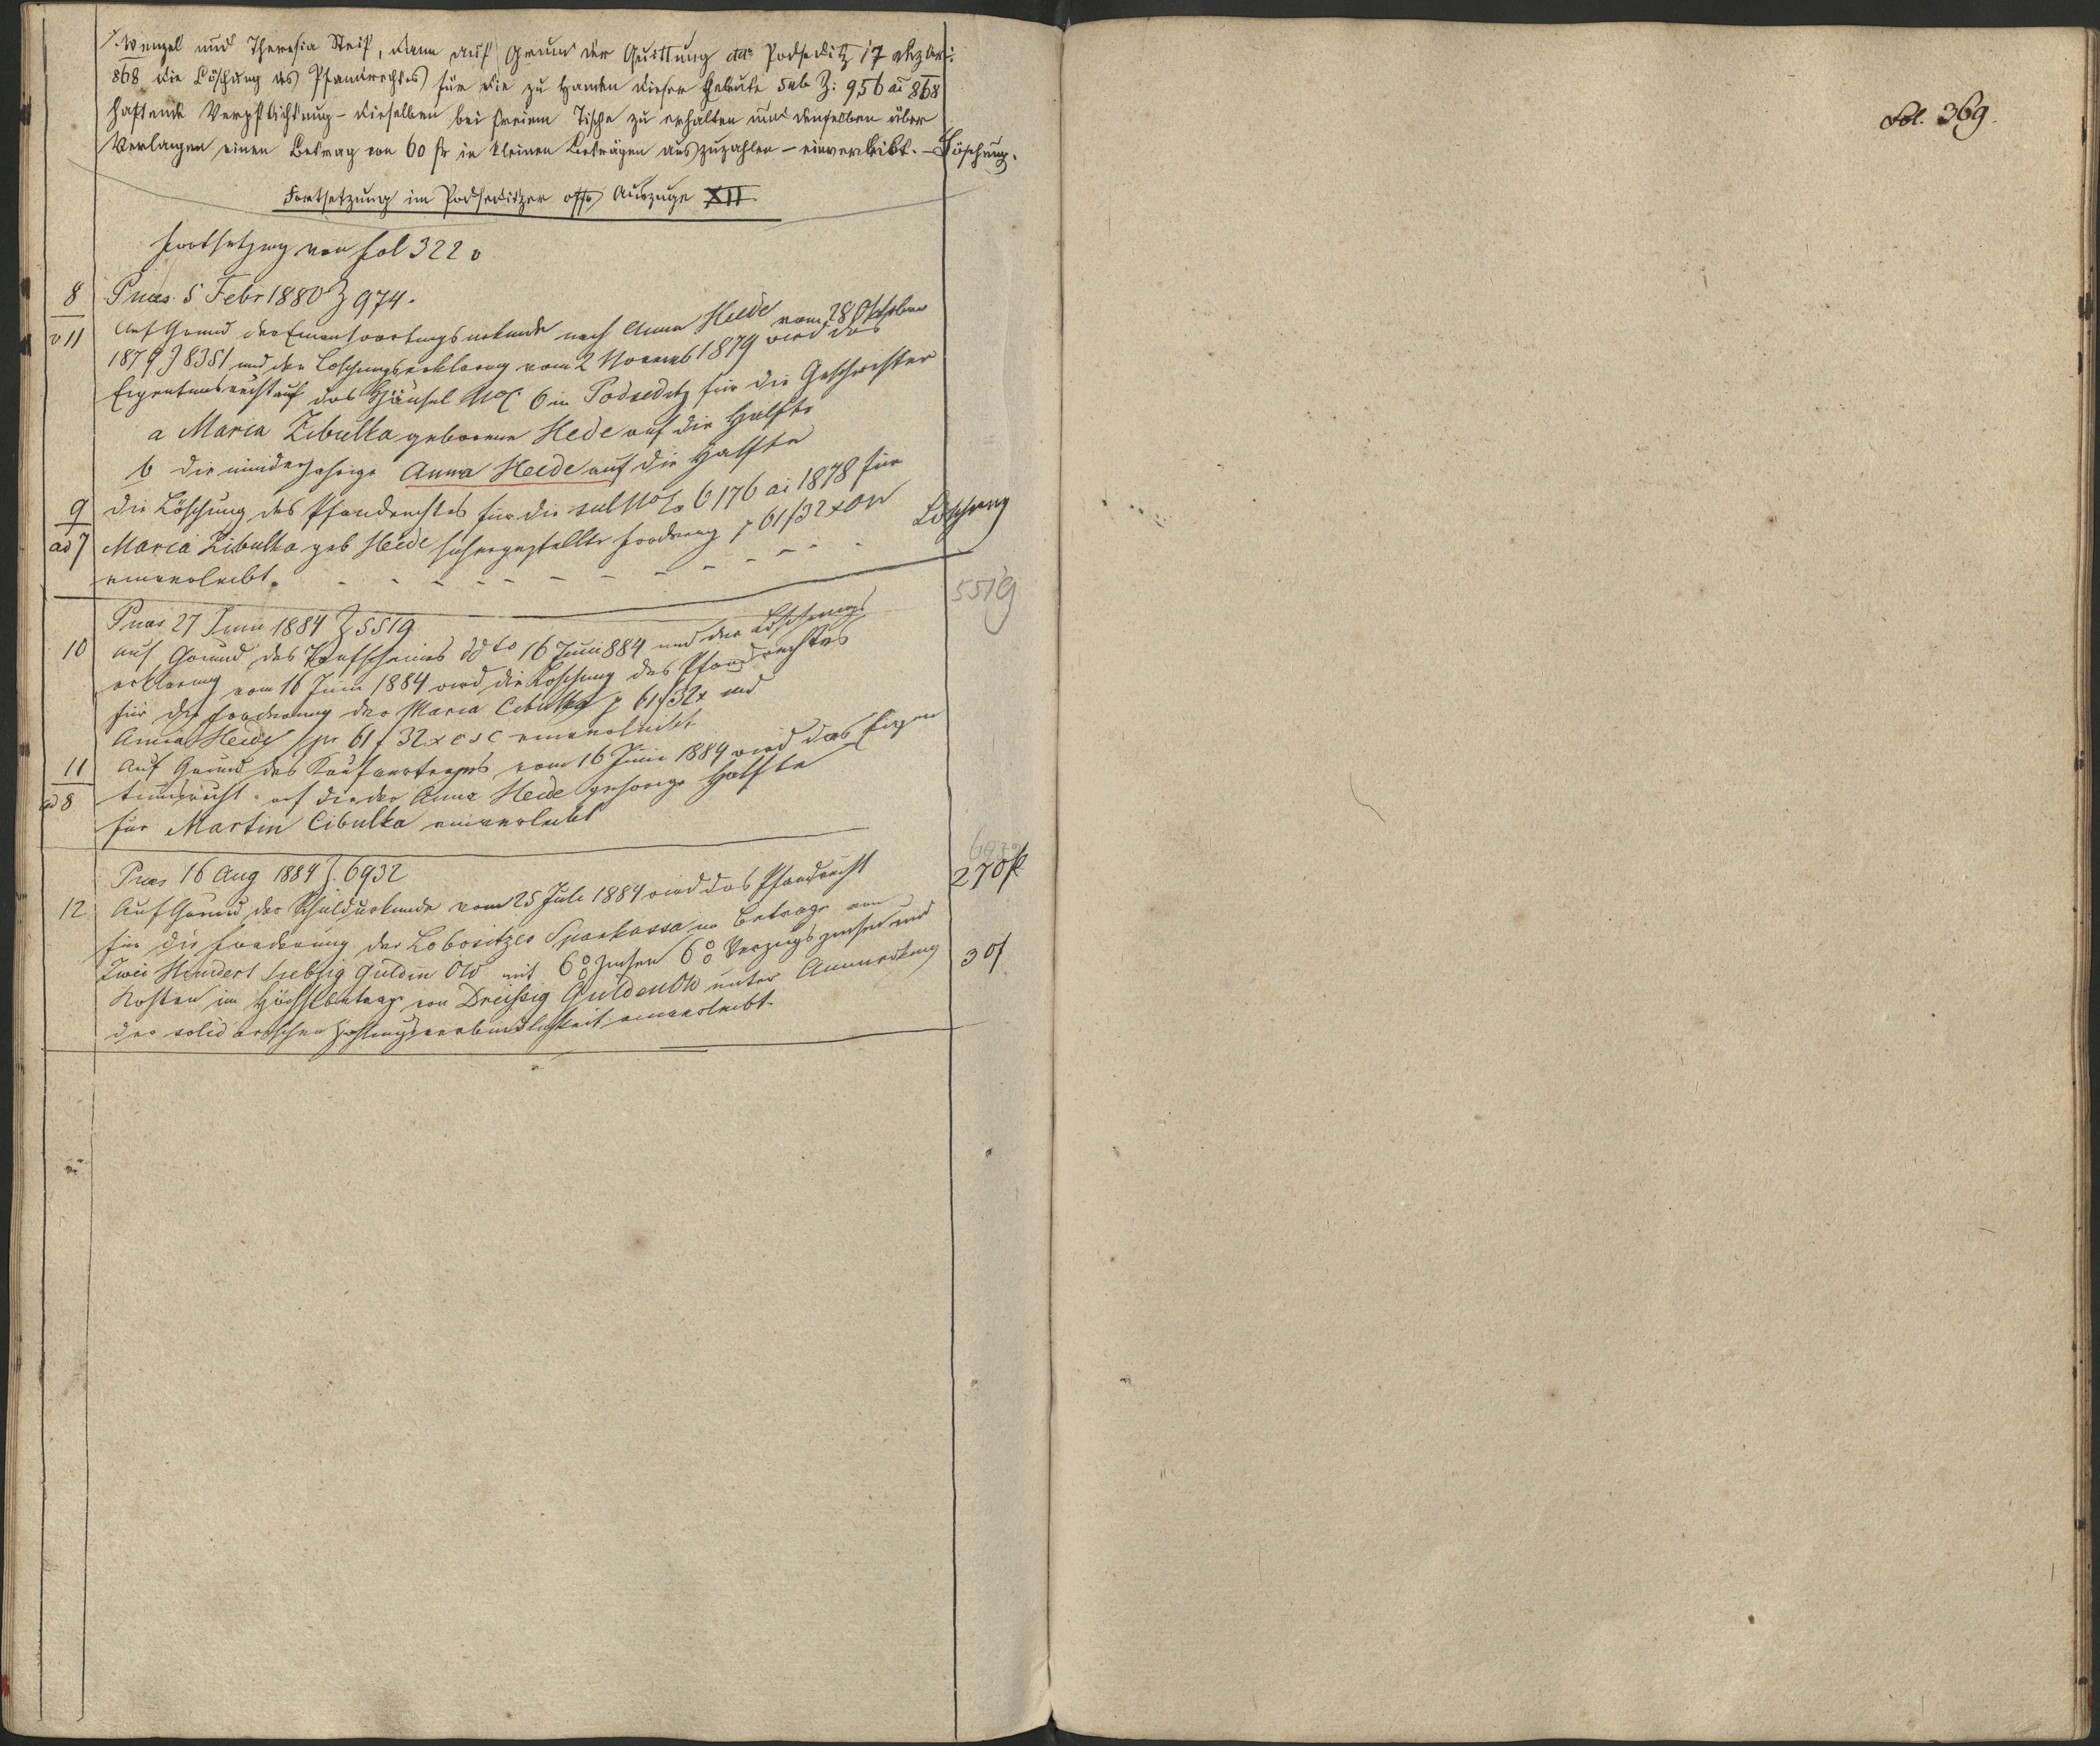 Wenzel und Theresia Steif, dann auf Grund der Quittung ddo Podseditz 17 Dezbr:
868 die Löschung des Pfandrechtes für die zu Handen dieser Eheleute sub Z: 956 ai 868
haftende Verpflichtung - dieselben bei freiem Tische zu erhalten und denselben über
Verlangen einen Betrag von 60 fr in kleinen Beträgen auszuzahlen - einverleibt. - Löschung.
Fortsetzung im Podseditzer Auszuge XII
Fortsetzung von fol 322 v
8 Praes. 5 Febr 1880 Z 974.
v 11 Auf Grund der Einantwortungsurkunde nach Anna Heide vom 28 Oktober
1879 Z 8351 und der Löschungserklärung vom 2 Novemb 1879 wird das
Eigentumsrecht auf das Häusel No C 6 in Podseditz für die Geschwister
a Maria Zibulka geborene Hede auf die Hälfte
b die minderjährige Anna Heede auf die Hälfte
9 die Löschung des Pfandrechtes für die sub No 6176 ai 1878 für
ad 7 Maria Zibulka geb Heede sichergestellte Forderung p 61 f 32 x ÖW Löschung
einverleibt.
Praes 27 Juni 1884 Z 5519 5519
10 Auf Grund des Kaufscheines ddto 16 Juni 884 und der Löschungs
erklärung vom 16 Juni 1884 wird die Löschung des Pfandrechtes
für die Forderung der Maria Cibulka p 61 f 32 x und
Anna Heide pr 61 f 32 x c s c einverleibt
11 Auf Grund des Kaufvertrages vom 16 Juni 1884 wird das Eigen
ad 8 tumsrecht auf die der Anna Heide gehörige Hälfte
für Martin Cibulka einverleibt
Praes 16 Aug 1884 Z. 6932 6932
12 Auf Grund der Schuldurkunde vom 25 Juli 1884 wird das Pfandrecht 270 f
für die Forderung der Lobositzer Sparkassa im Betrage von
Zwei Hundert siebzig Gulden ÖW mit 6% Zinsen 6% Verzugszinsen und
Kosten im Höchstbetrage von Dreissig Gulden ÖW unter Anmerkung 30 f
der solidarischen Zahlungsverbindlichkeit einverleibt.
Fol. 369.